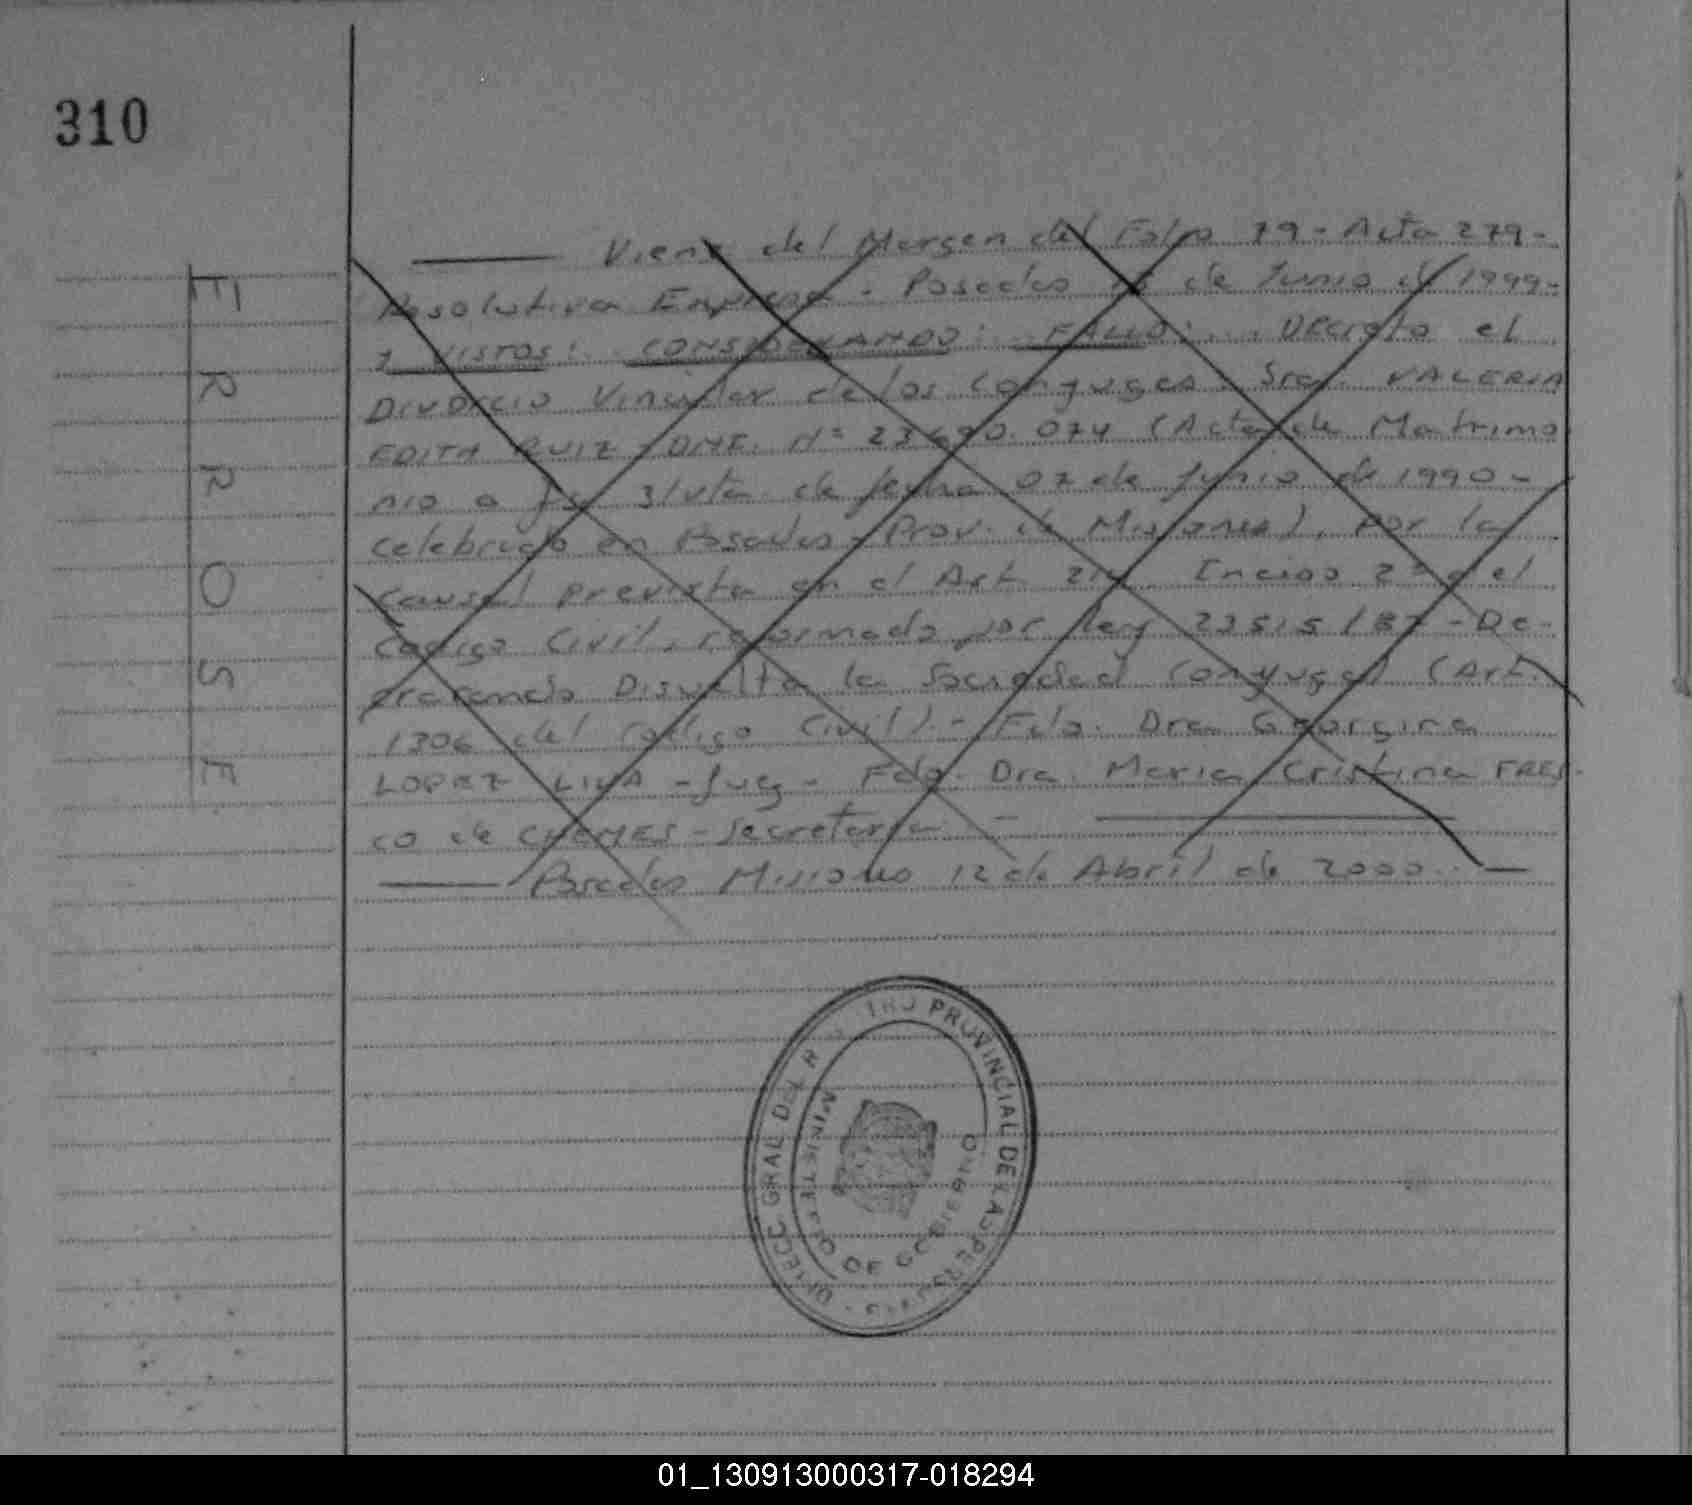 310
Viene del Margen del Folio 79 - Acta 279 -
Resolutiva Expresa - Posadas de Junio de 1999 -
y VISTOS: .. CONSIDERANDO: .. FALLO: ... Decreto el
DIVORCIO Vincular de los Conyuges Sra. VALERIA
EDITH RUIZ - DNI. Nº 23.690.074 (Acta de Matrimo
nio a fs. 31vta. de fecha 07 de Junio de 1990 -
celebrado en Posadas - Prov. de Misiones), por la
causal prevista en el Art. 214 Inciso 2º del
Codigo Civil, reformado por ley 23515/87 - De-
clarando Disuelta la Sociedad Conyugal (Art.
1306 del Codigo Civil). - Fdo. Dra Georgina
LOPEZ LIVA - Juez - Fdo. Dra. Maria Cristina FRES-
CO de CHEMES - Secretaria -
Posadas Misiones 12 de Abril de 2000..
E
R
R
O
S
E
DIRECC. GRAL DEL PROVINCIAL DE LAS PERSONAS
MINISTERIO DE GOBIERNO
01_130913000317-018294